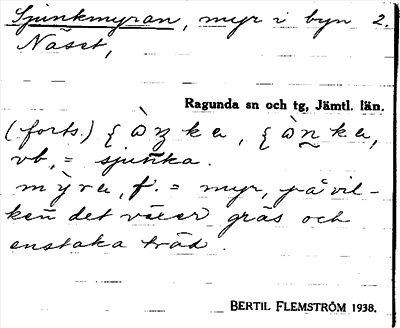 Sjunkmyran, myr i byn 2.
Näset,
Ragunda sn och tg, Jämtl. län.
(forts.)
vb, = sjunka.
f. = myr, på vil-
ken det växer gräs och
enstaka träd.
BERTIL FLEMSTRÖM 1938.